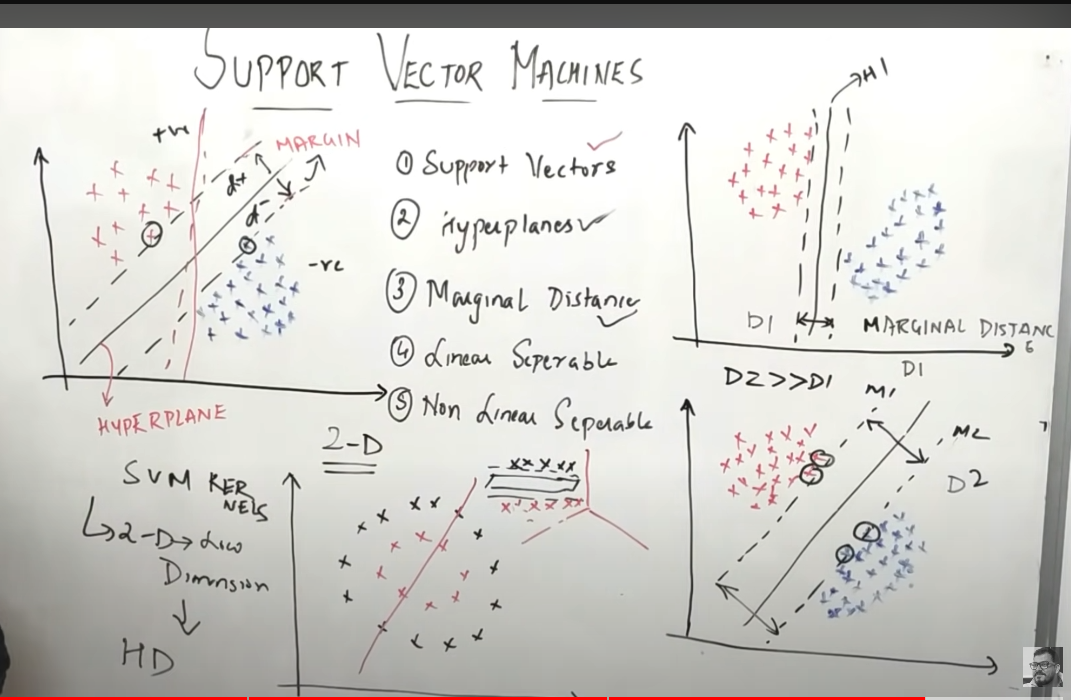 SUPPORT VECTOR MACHINES
+ve
MARGIN
d+
d-
-ve
HYPERPLANE
① Support Vectors
② Hyperplanes
③ Marginal Distance
④ Linear Seperable
⑤ Non Linear Seperable
H1
D1
MARGINAL DISTANC
E
D1
D2>>D1
M1
M2
D2
SVM KER
NELS
2-D→Low
Dimension
HD
2-D